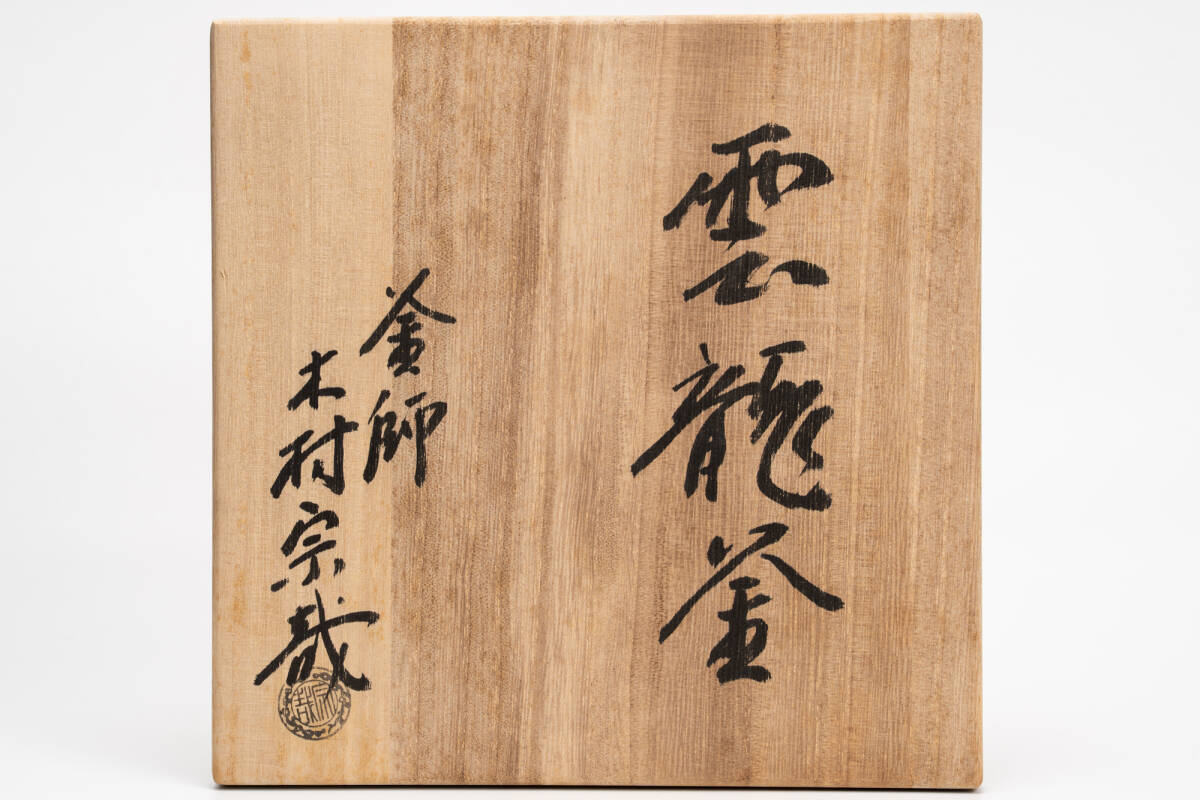 雲龍釜
釜師
木村宗哉